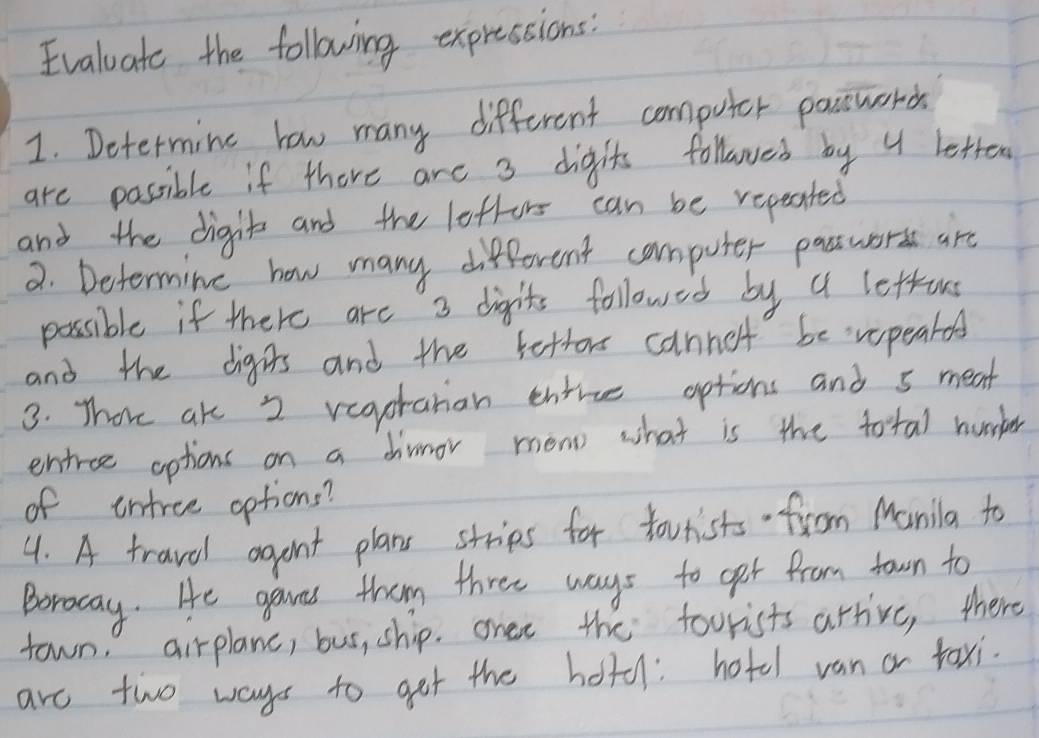 Evaluate the following expressions:
1. Determine how many different computer passwords
are possible if there are 3 digits followed by 4 letters
and the digits and the letters can be repeated
2. Determine how many different computer passwords are
possible if there are 3 digits followed by 4 letters
and the digits and the letters cannot be repeated
3. There are 2 vegetarian entree options and 5 meat
entree options on a dinner menu what is the total number
of entree options?
4. A travel agent plans strips for tourists from Manila to
Boracay. He gaves them three ways to get from town to
town. airplane, bus, ship. once the tourists arrive, there
are two ways to get the hotel: hotel van or taxi.